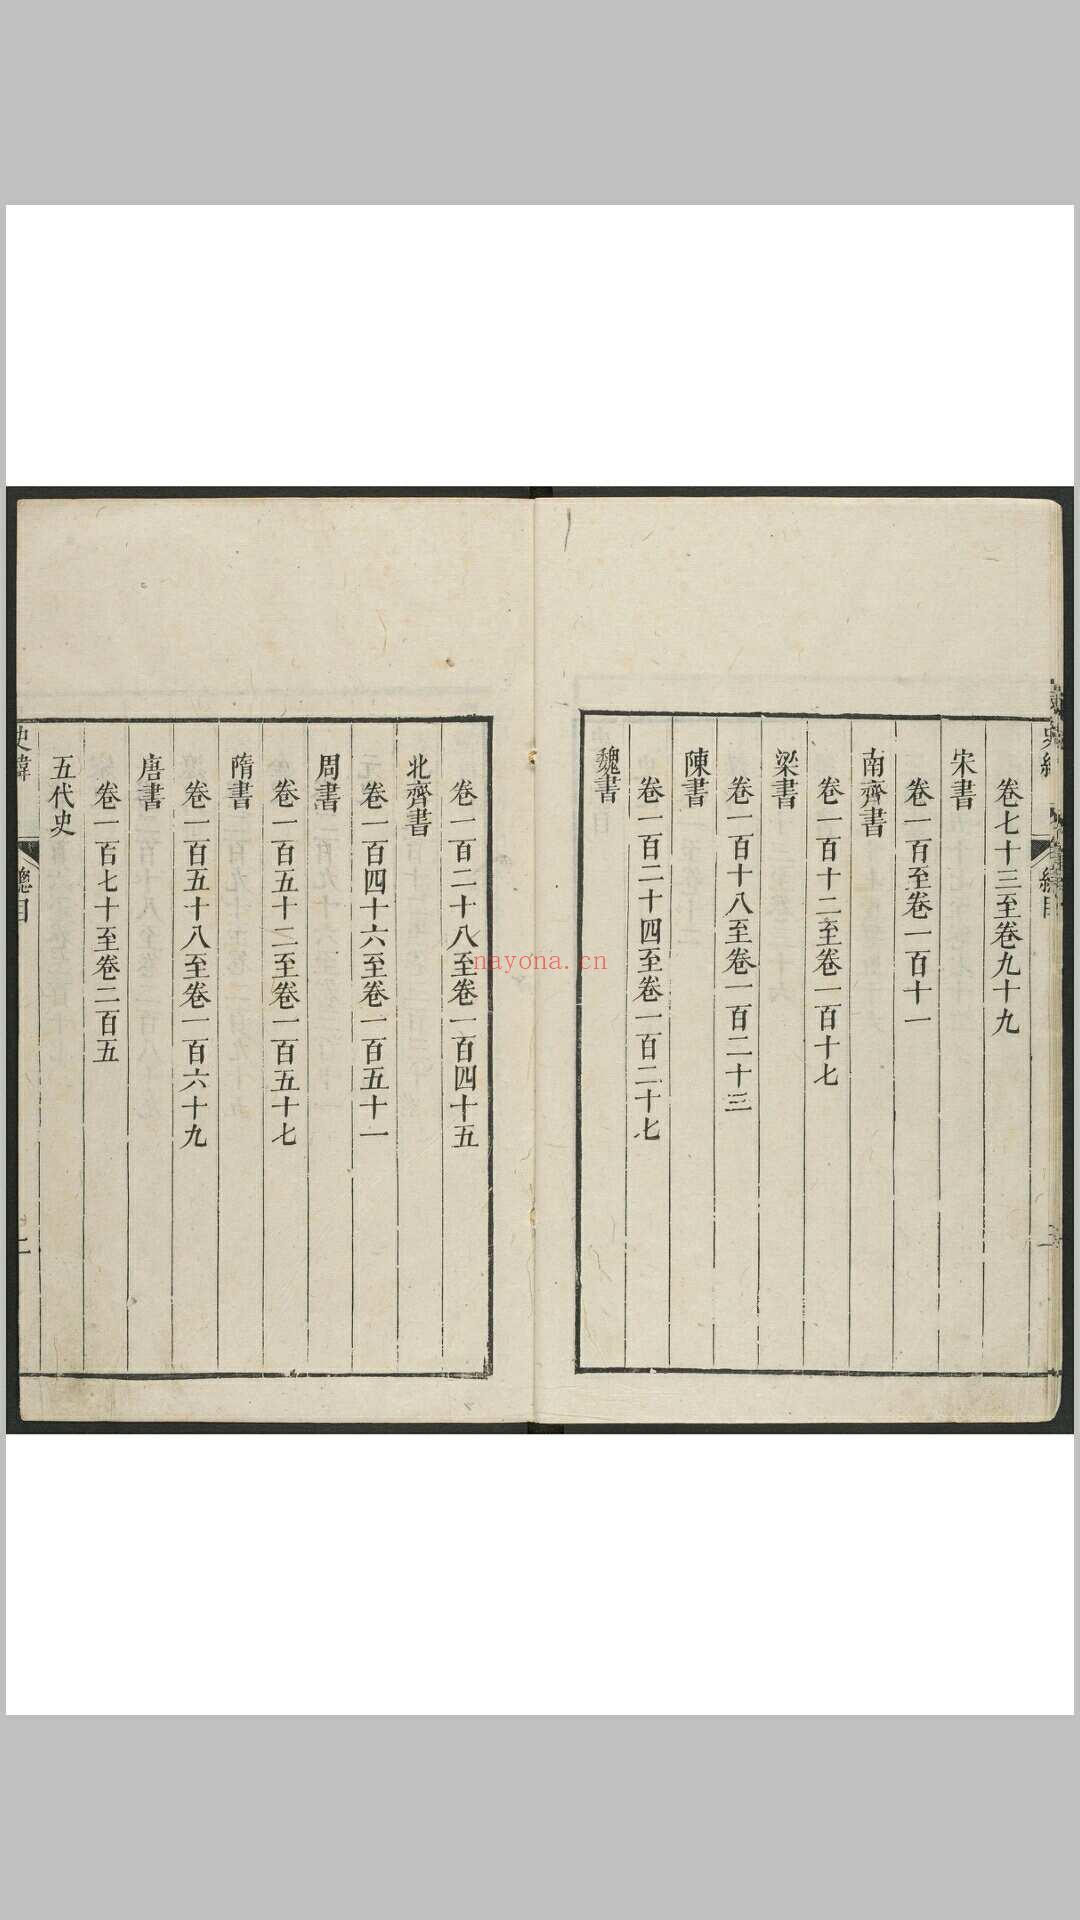 卷七十三至卷九十九
宋書
卷一百至卷一百十一
南齊書
卷一百十二至卷一百十七
梁書
卷一百十八至卷一百二十三
陳書
卷一百二十四至卷一百二十七
魏書
卷一百二十八至卷一百四十五
北齊書
卷一百四十六至卷一百五十一
周書
卷一百五十二至卷一百五十七
隋書
卷一百五十八至卷一百六十九
唐書
卷一百七十至卷二百五
五代史
史緯
總目
nayona.cn